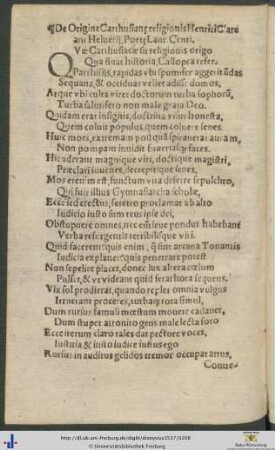 ¶De Origine Carthusianę religionis Henrici Glare
ani Heluetij, Poetę Laur. Centi.
Vę Carthusiacæ sit religionis origo
Qua fluat historia, Calliopea refer.
Parthisiis, rapidas vbi spumifer aggerit ūdas
Sequana, & occiduas vellet adisse domos,
Atque vbi culta viret doctorum turba sophorū,
Turba salutifero non male grata Deo.
Quidam erat insignis, doctrina viuus honesta,
Quem coluit populus, quem coluere senes.
Huic mors, extremam postquā spirauerat auram,
Non pompam inuidit funeris, & faces.
Hic aderant magnique viri, doctique magistri,
Præclari iuuenes, decrepitique senes,
Mos etenim est, functum vita deferre sepulchro,
Qui fuit illius Gymnasiarcha scholæ,
Ecce sed erectus, feretro proclamat ab alto
Iudicio iusto sum reus ipse dei,
Obstupuere omnes, nec in se pondus habebant
Verba resurgentis terribilisque viri.
Quid facerent? quis enim, q̄ sint arcana Tonantis
Iudicia explanet? quis penetrare potest
Non sepelire placet, donec lux altera cœlum
Pulset, & vt videant quid ferat hora sequens.
Vix sol prodierat, quando replet omnia vulgus
Itineriant proceres, turbaque tota simul,
Dum rursus famuli mœstum mouere cadauer,
Dum stupet attonito gens male lecta foro
Ecce iterum claro tales dat pectore voces,
Iustitia & iusto iudice iustus ego
Rursus inauditus gelidos tremor occupat artus,
Conue-
http://dl.ub.uni-freiburg.de/diglit/dionysius1537/0208
© Universitätsbibliothek Freiburg